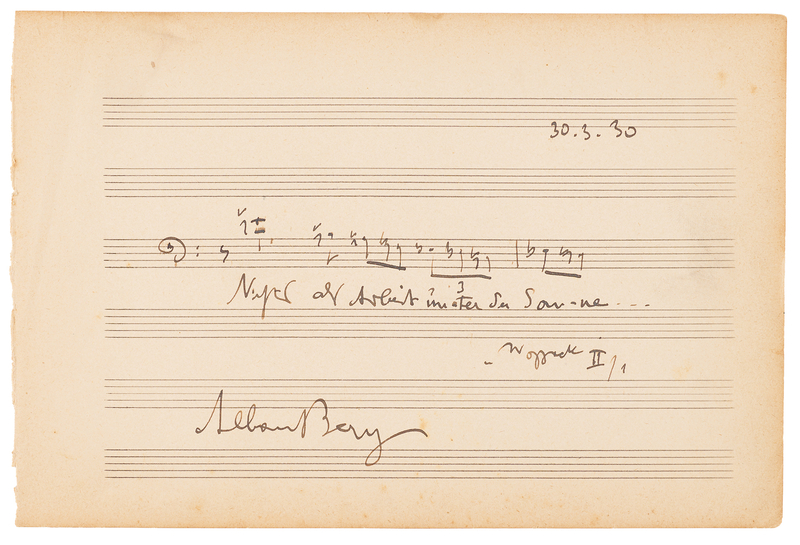 30.3.30
Nichts als Arbeit unter der Son-ne - - -
3
- Wozzeck II/1
Alban Berg